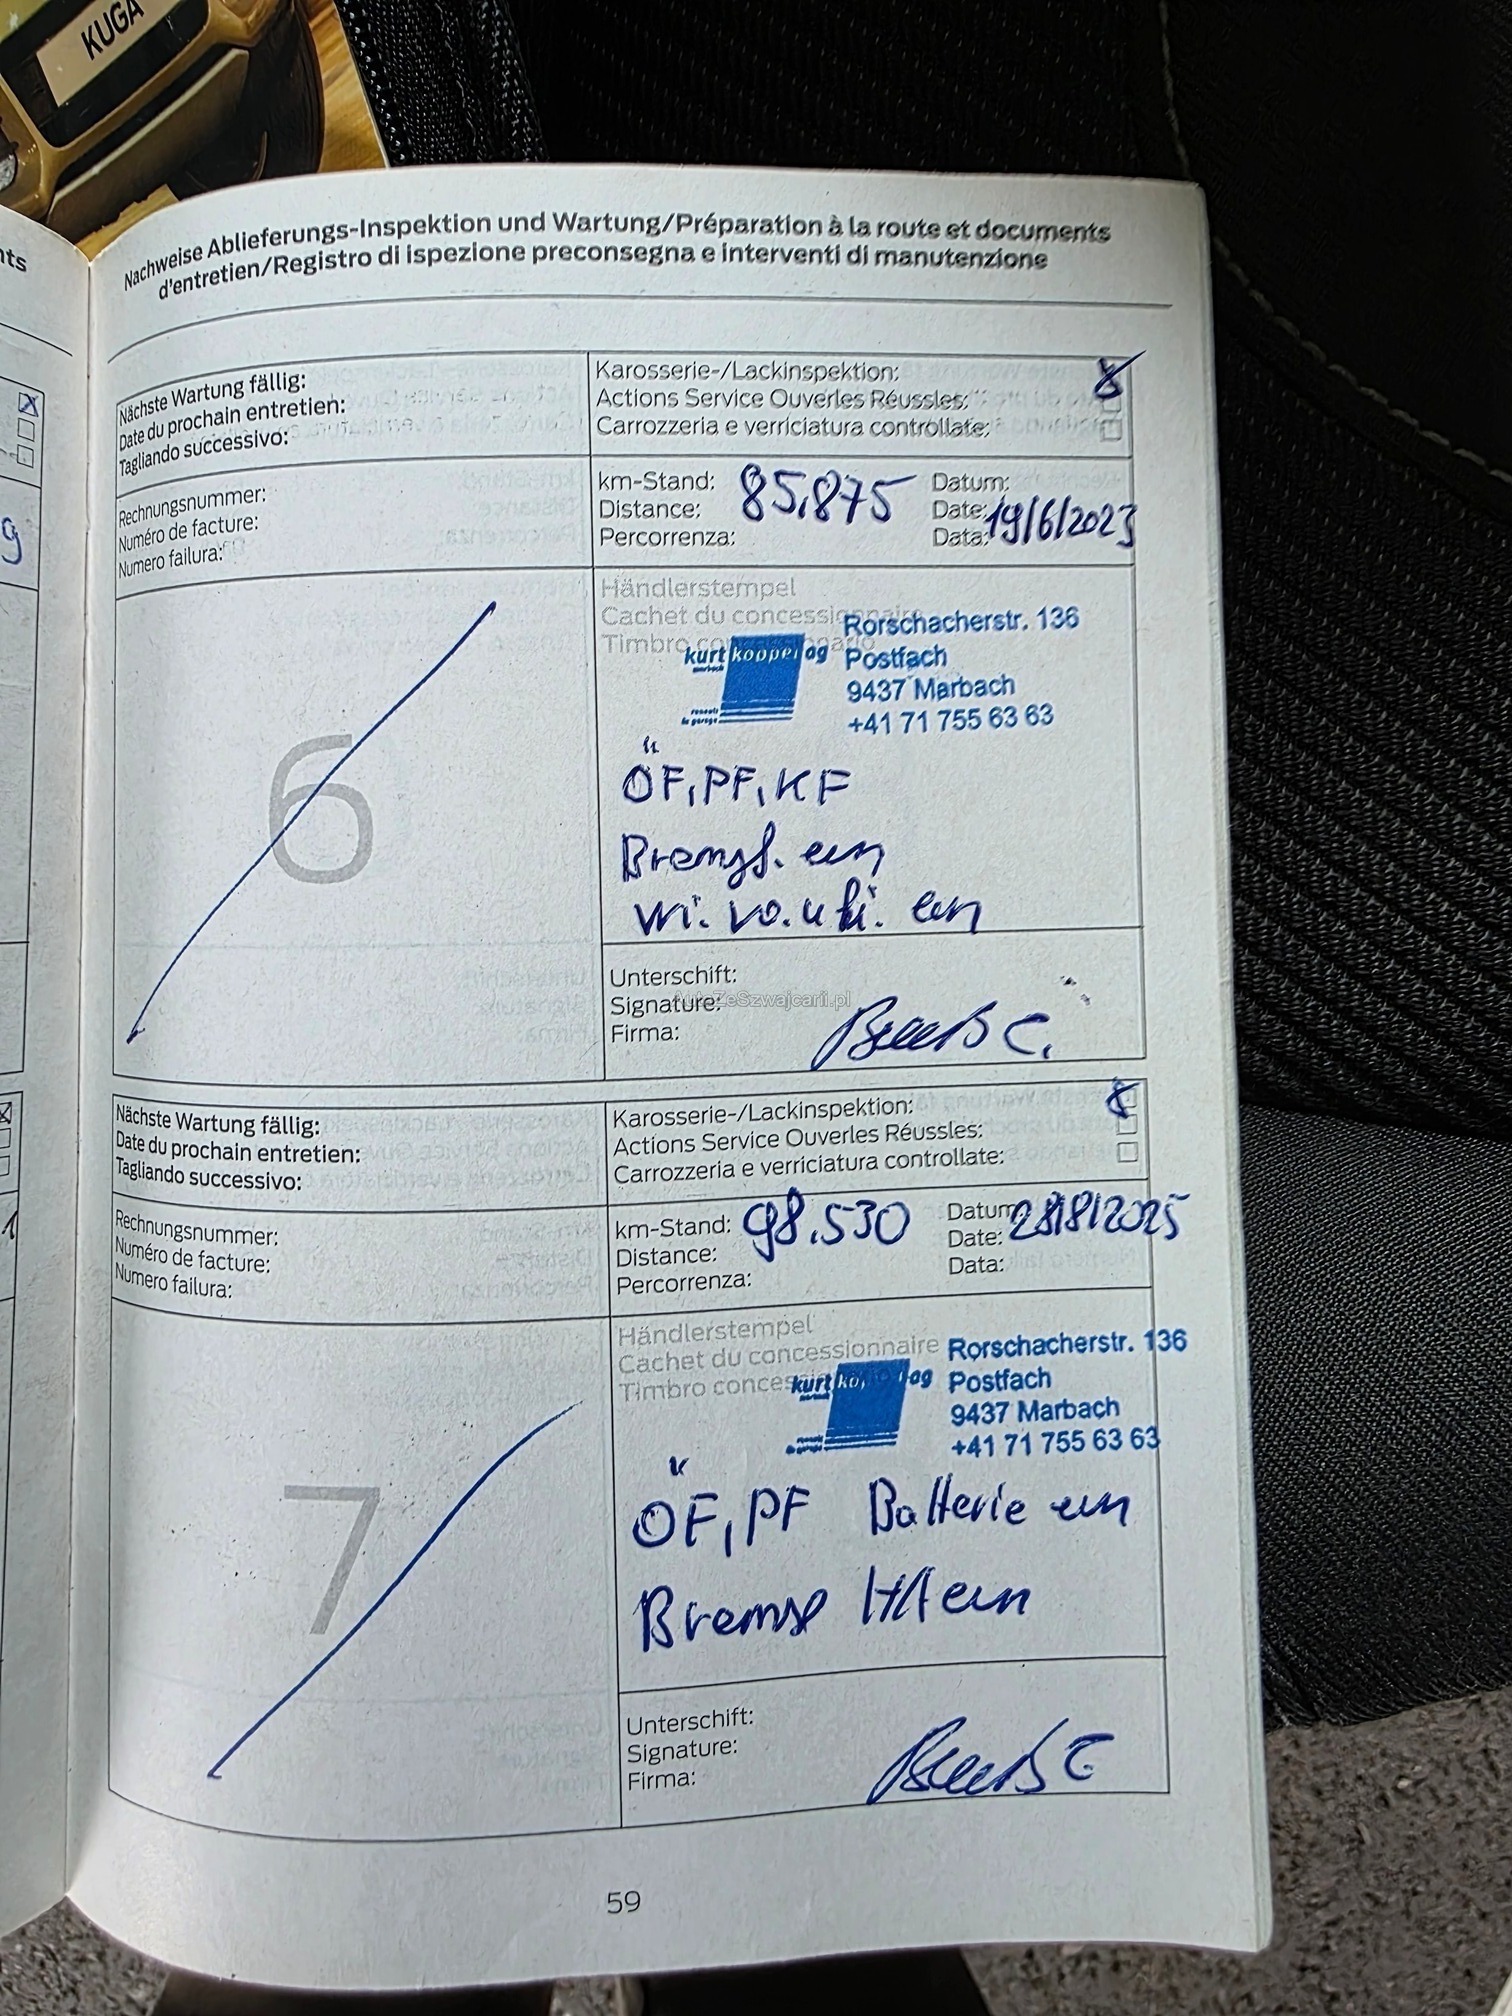 KUGA
nts
Nachweise Ablieferungs-Inspektion und Wartung/Préparation à la route et documents
d'entretien/Registro di ispezione preconsegna e interventi di manutenzione
Nächste Wartung fällig:
Date du prochain entretien:
Tagliando successivo:
Karosserie-/Lackinspektion:
Actions Service Ouverles Réussles:
Carrozzeria e verriciatura controllate:
Rechnungsnummer:
Numéro de facture:
Numero failura:
km-Stand: 85.875
Distance:
Percorrenza:
Datum:
Date: 19/6/2023
Data:
6
Händlerstempel
Cachet du concessionnaire
Timbro concessionario
kurt koppel ag
Rorschacherstr. 136
Postfach
9437 Marbach
+41 71 755 63 63
ÖF, PF, KF
Bremsf. ern
wi. vo. u hi. ern
Unterschift:
Signature:
Firma:
AutoZeSzwajcarii.pl
Nächste Wartung fällig:
Date du prochain entretien:
Tagliando successivo:
Karosserie-/Lackinspektion:
Actions Service Ouverles Réussles:
Carrozzeria e verriciatura controllate:
Rechnungsnummer:
Numéro de facture:
Numero failura:
km-Stand: 98.530
Distance:
Percorrenza:
Datum: 28/8/2025
Date:
Data:
7
Händlerstempel
Cachet du concessionnaire
Timbro
kurt ag
Rorschacherstr. 136
Postfach
9437 Marbach
+41 71 755 63 63
ÖF, PF Batterie ern
Bremse H/A ern
Unterschift:
Signature:
Firma:
59